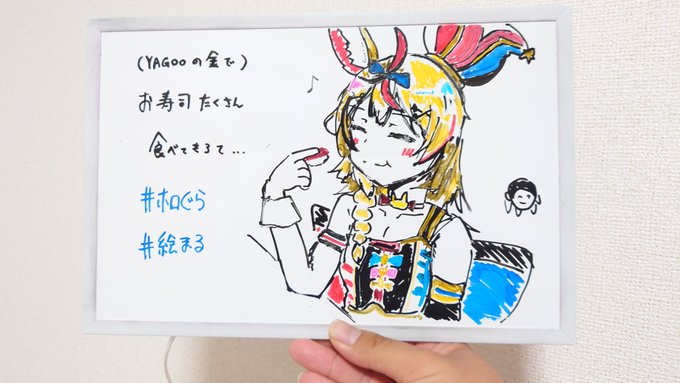 (YAGOOの金で)
お寿司たくさん
食べてきろて...
#ホロぐら
#絵まる
♪